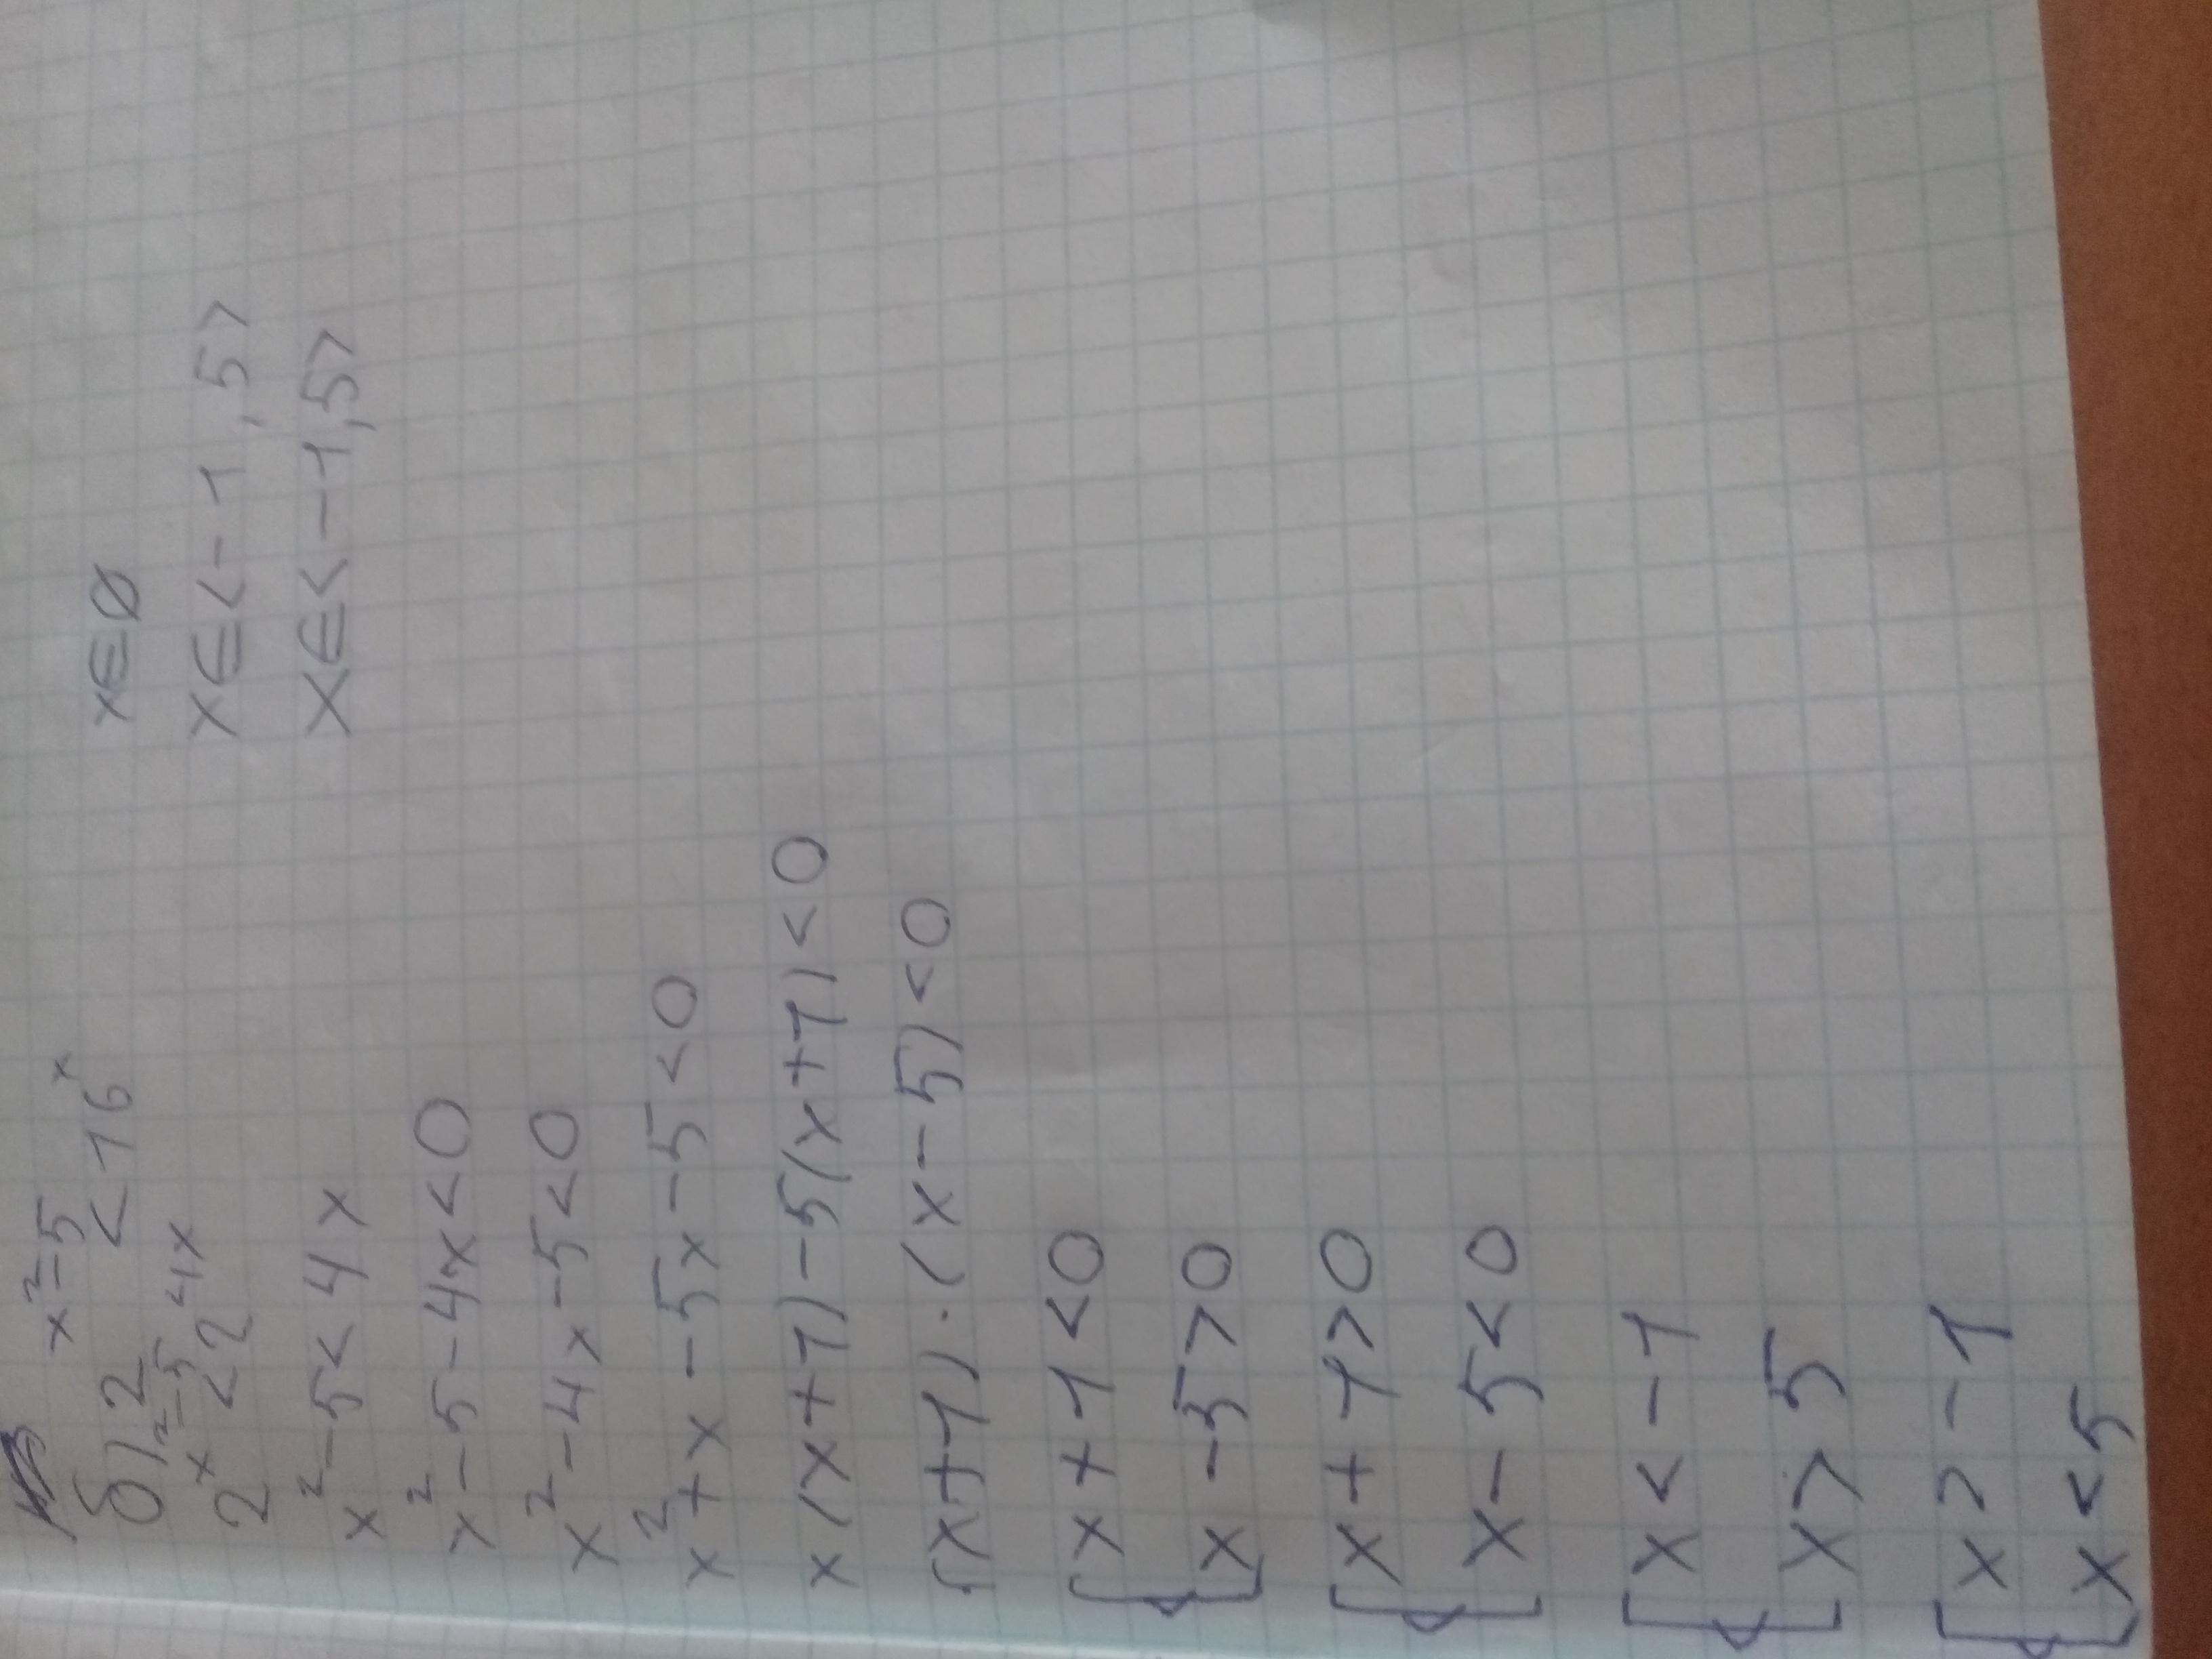 б) 2^(x²-5) < 16^x
2^(x²-5) < 2^(4x)
x² - 5 < 4x
x² - 5 - 4x < 0
x² - 4x - 5 < 0
x² + x - 5x - 5 < 0
x(x+1) - 5(x+1) < 0
(x+1) · (x-5) < 0
{ x + 1 < 0
x - 5 > 0
{ x + 1 > 0
x - 5 < 0
{ x < -1
x > 5
{ x > -1
x < 5
x ∈ ∅
x ∈ < -1, 5 >
x ∈ < -1, 5 >